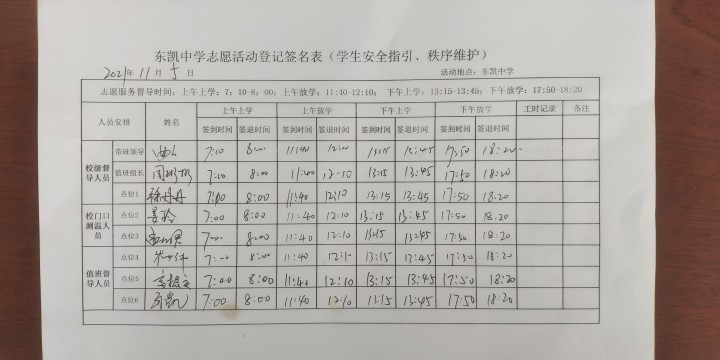 东凯中学志愿活动登记签名表（学生安全指引、秩序维护）
2021年 11 月 5 日 活动地点：东凯中学
志愿服务督导时间：上午上学：7：10-8：00；上午放学：11:40-12:10； 下午上学：13:15-13:45；下午放学：17:50-18:20
人员安排 姓名 上午上学 上午放学 下午上学 下午放学 工时记录 备注
签到时间 签退时间 签到时间 签退时间 签到时间 签退时间 签到时间 签退时间
校级督导人员
带班领导 7:10 8:00 11:40 12:10 13:15 13:45 17:50 18:20
值班组长 7:10 8:00 11:40 12:10 13:15 13:45 17:50 18:20
点位1 徐丹丹 7:00 8:00 11:40 12:10 13:15 13:45 17:50 18:20
校门口测温人员
点位2 7:00 8:00 11:40 12:10 13:15 13:45 17:50 18:20
点位3 7:00 8:00 11:40 12:10 13:15 13:45 17:50 18:20
值班督导人员
点位4 7:00 8:00 11:40 12:10 13:15 13:45 17:50 18:20
点位5 7:00 8:00 11:40 12:10 13:15 13:45 17:50 18:20
点位6 7:00 8:00 11:40 12:10 13:15 13:45 17:50 18:20